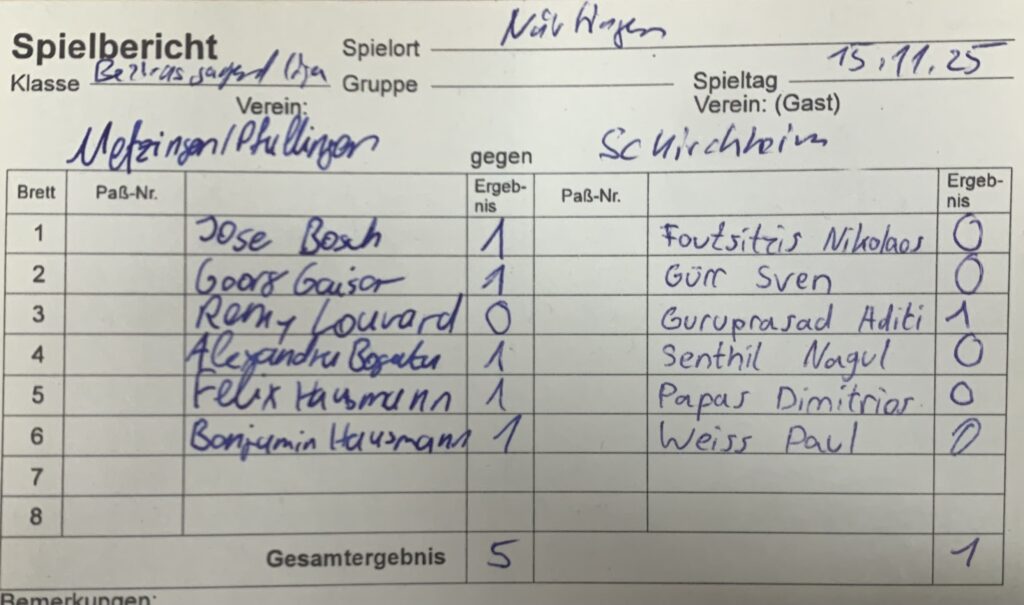 Spielbericht Spielort Nürtingen
Klasse Bezirksjugendliga Gruppe Spieltag 15.11.25
Verein: Verein: (Gast)
Metzingen/Pfullingen gegen SC Kirchheim
Brett Paß-Nr. Ergeb-nis Paß-Nr. Ergeb-nis
1 Jose Bosch 1 Foutsitzis Nikolaos 0
2 Georg Gaiser 1 Gürr Sven 0
3 Remy Louvard 0 Guruprasad Aditi 1
4 Alexandru 1 Senthil Nagul 0
5 Felix Hausmann 1 Papas Dimitrios 0
6 Benjamin Hausmann 1 Weiss Paul 0
7
8
Gesamtergebnis 5 1
Bemerkungen: